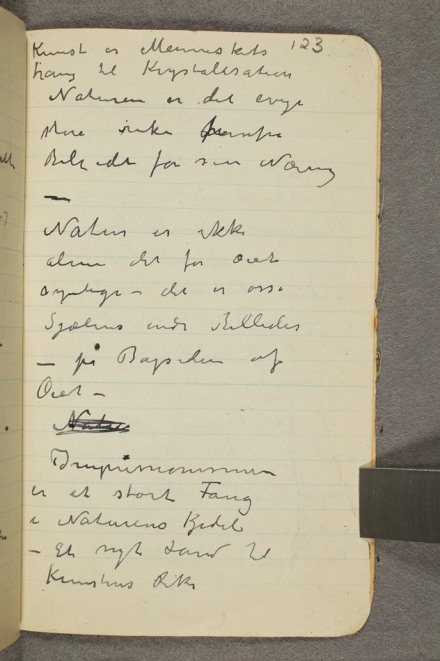 Kunst er Menneskets 123
trang til Krystalisation
Naturen er det evige
store rike
for sin Næring
—
Natur er ikke
alene det for øiet
synlige – det er også
Sjælens indre Billeder
– på Bagsiden af
Øiet –
Natur
Impressionismen
er et stort Fang
i Naturens Kjedel
– Et nyt Land til
Kunstens Rike